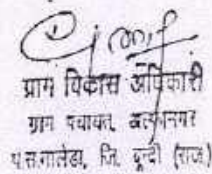 ग्राम विकास अधिकारी
ग्राम पंचायत,
प.स.तालेडा, जि. बून्दी (राज.)